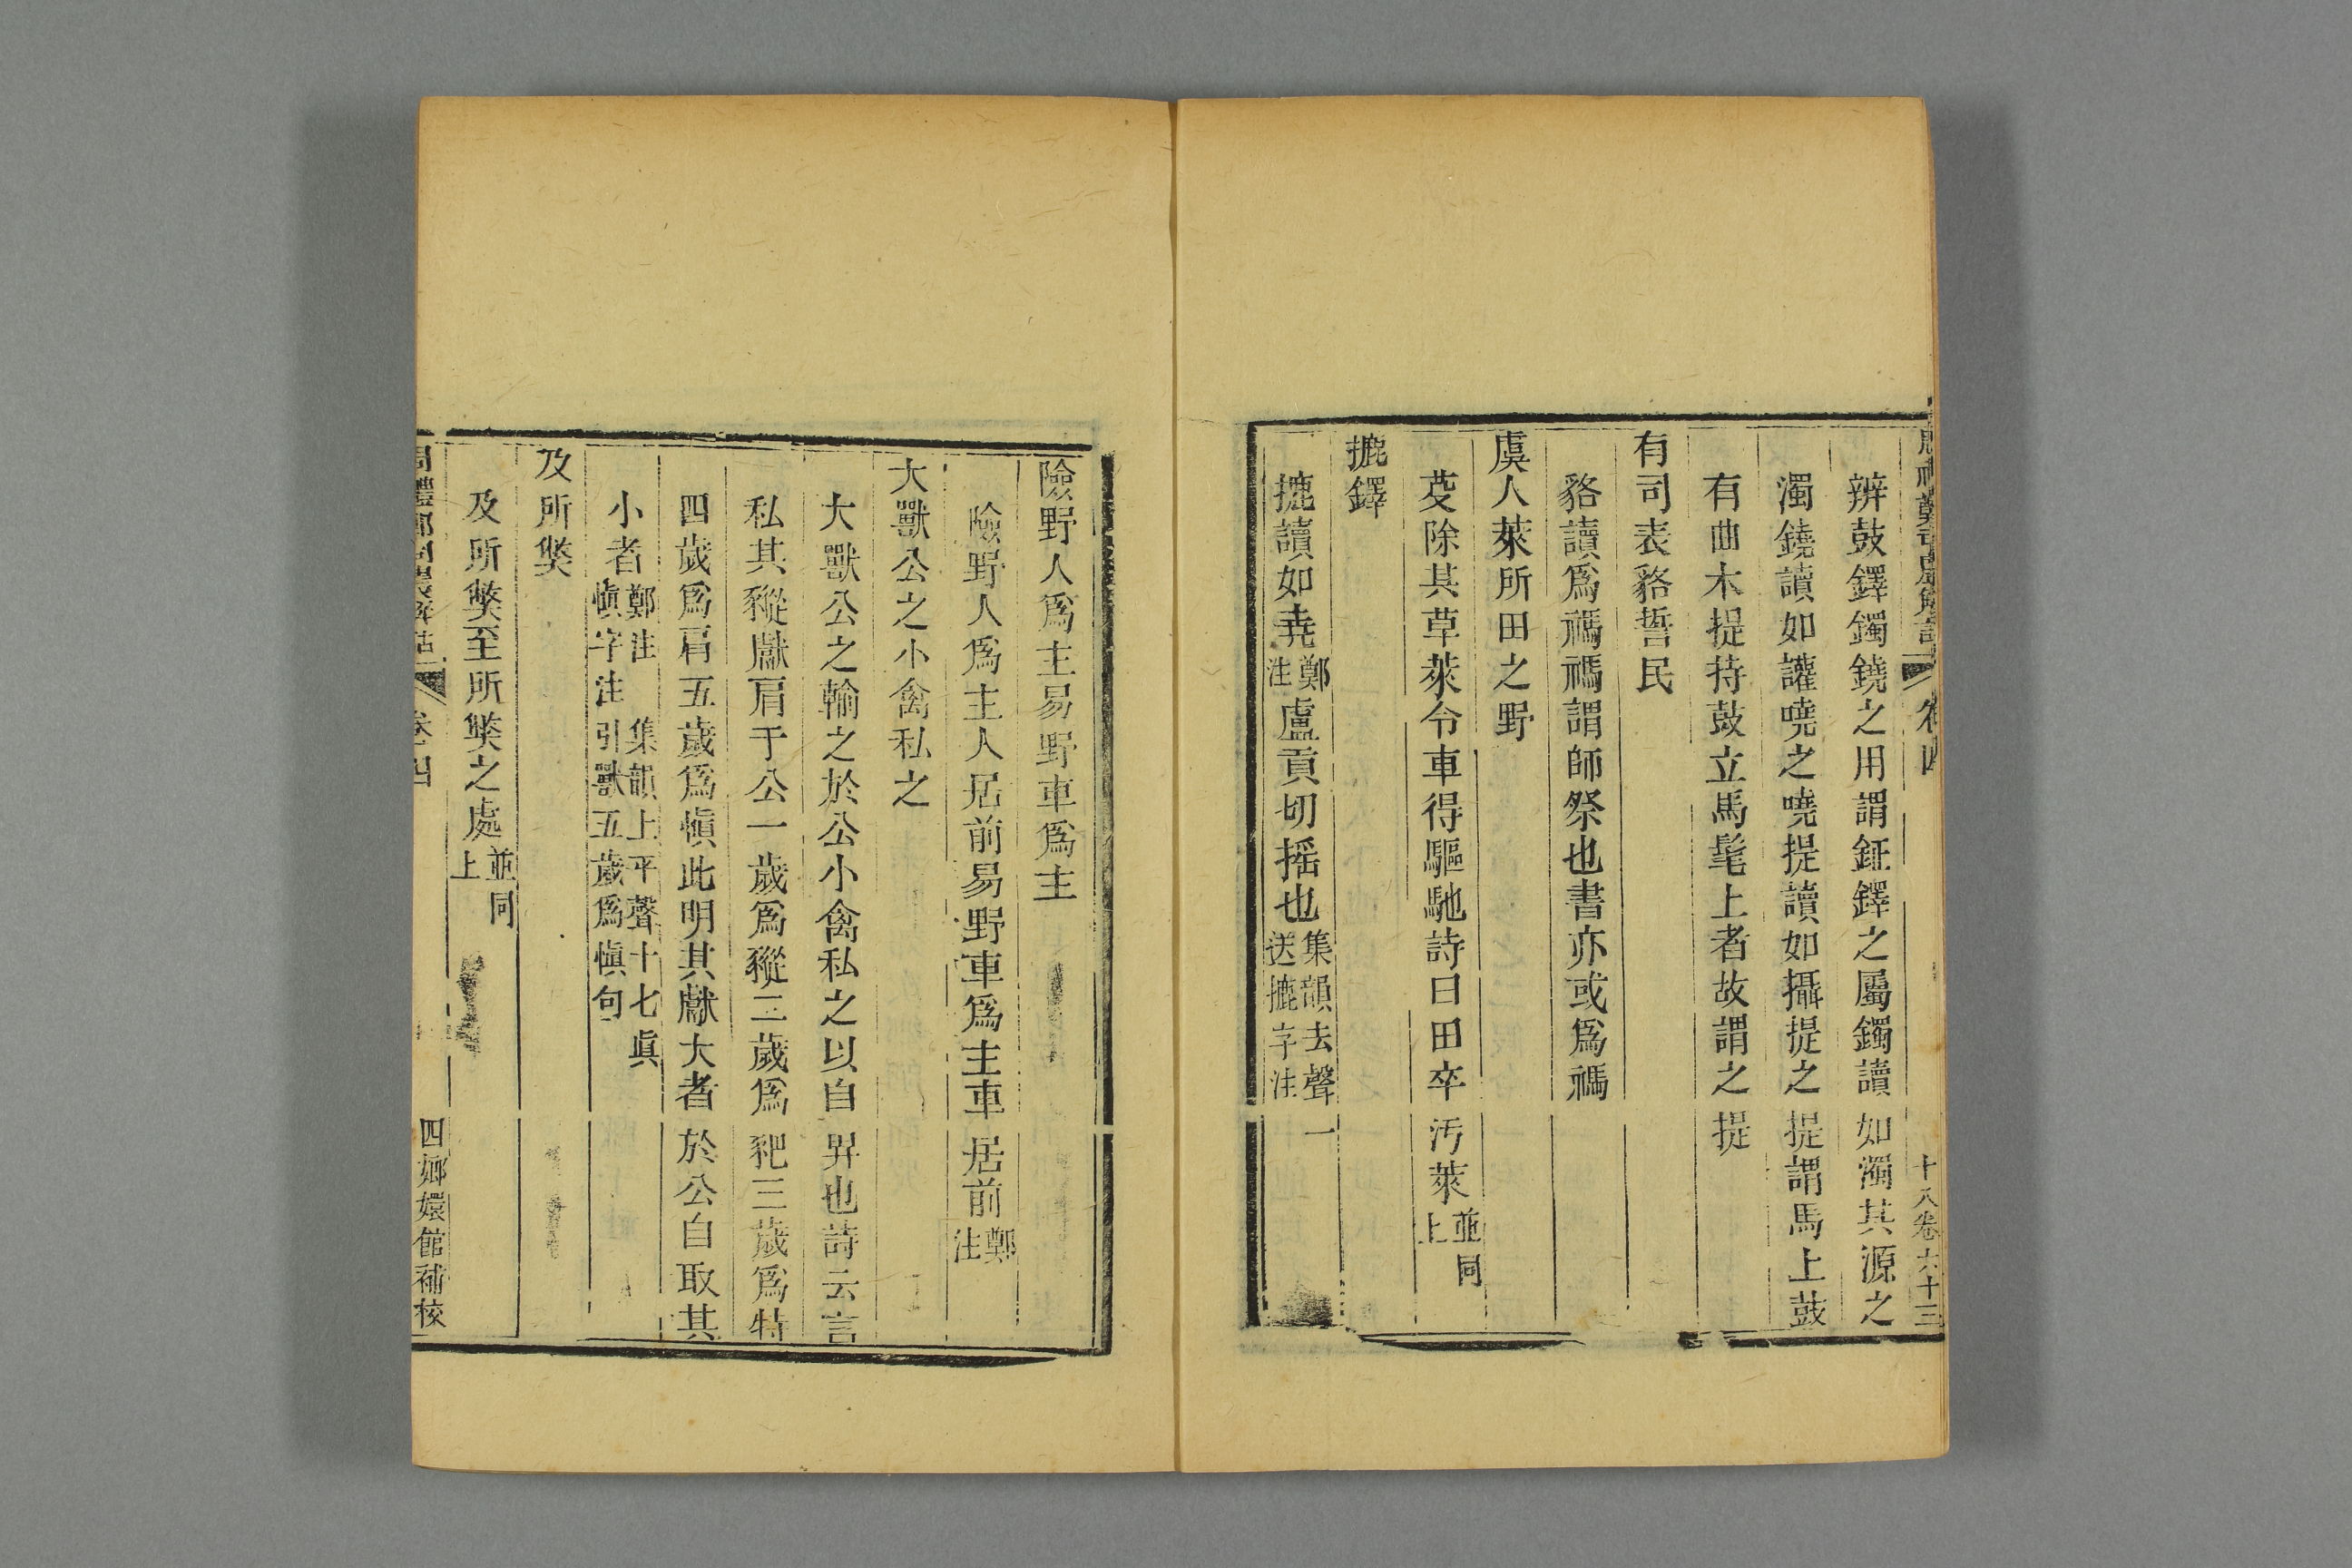 辨鼓鐸鐲鐃之用謂鉦鐸之屬鐲讀如濁其源之
濁鐃讀如讙嘵之嘵提讀如攝提之提謂馬上鼓
有曲木提持鼓立馬髦上者故謂之提
有司表貉誓民
貉讀爲禡禡謂師祭也書亦或爲禡
虞人萊所田之野
芟除其草萊令車得驅馳詩曰田卒汚萊並同上
摝鐸
摝讀如弄鄭注盧貢切搖也集韻去聲一送摝字注
險野人爲主易野車爲主
險野人爲主人居前易野車爲主車居前鄭注
大獸公之小禽私之
大獸公之輸之於公小禽私之以自畀也詩云言
私其豵獻肩于公一歲爲豵二歲爲豝三歲爲特
四歲爲肩五歲爲愼此明其獻大者於公自取其
小者鄭注 集韻上平聲十七眞愼字注引獸五歲爲愼句
及所獘
及所獘至所獘之處並同上
卷四
四 嫏嬛館補校